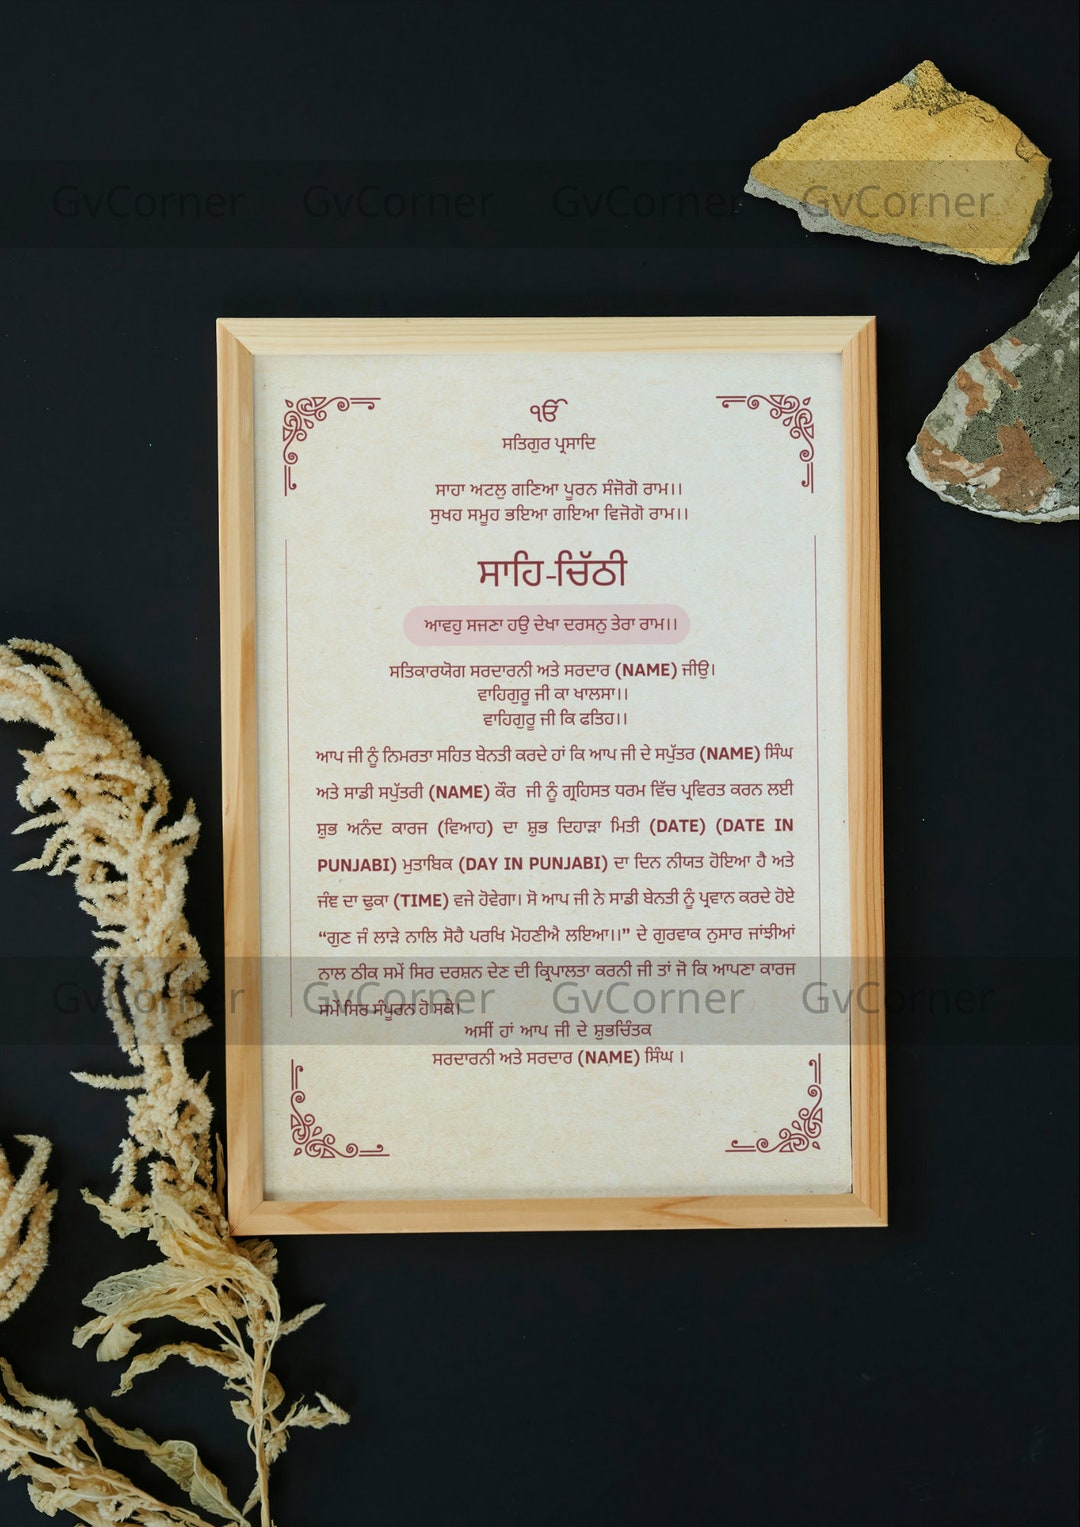 GvCorner GvCorner GvCorner GvCorner
ੴ
ਸਤਿਗੁਰ ਪ੍ਰਸਾਦਿ
ਸਾਹਾ ਅਟਲੁ ਗਣਿਆ ਪੂਰਨ ਸੰਜੋਗੋ ਰਾਮ।।
ਸੁਖਹ ਸਮੂਹ ਭਇਆ ਗਇਆ ਵਿਜੋਗੋ ਰਾਮ।।
ਸਾਹਿ-ਚਿੱਠੀ
ਆਵਹੁ ਸਜਣਾ ਹਉ ਦੇਖਾ ਦਰਸਨੁ ਤੇਰਾ ਰਾਮ।।
ਸਤਿਕਾਰਯੋਗ ਸਰਦਾਰਨੀ ਅਤੇ ਸਰਦਾਰ (NAME) ਜੀਉ।
ਵਾਹਿਗੁਰੂ ਜੀ ਕਾ ਖਾਲਸਾ।।
ਵਾਹਿਗੁਰੂ ਜੀ ਕਿ ਫਤਿਹ।।
ਆਪ ਜੀ ਨੂੰ ਨਿਮਰਤਾ ਸਹਿਤ ਬੇਨਤੀ ਕਰਦੇ ਹਾਂ ਕਿ ਆਪ ਜੀ ਦੇ ਸਪੁੱਤਰ (NAME) ਸਿੰਘ
ਅਤੇ ਸਾਡੀ ਸਪੁੱਤਰੀ (NAME) ਕੌਰ ਜੀ ਨੂੰ ਗ੍ਰਹਿਸਤ ਧਰਮ ਵਿੱਚ ਪ੍ਰਵਿਰਤ ਕਰਨ ਲਈ
ਸ਼ੁਭ ਅਨੰਦ ਕਾਰਜ (ਵਿਆਹ) ਦਾ ਸ਼ੁਭ ਦਿਹਾੜਾ ਮਿਤੀ (DATE) (DATE IN
PUNJABI) ਮੁਤਾਬਿਕ (DAY IN PUNJABI) ਦਾ ਦਿਨ ਨੀਯਤ ਹੋਇਆ ਹੈ ਅਤੇ
ਜੰਞ ਦਾ ਢੁਕਾ (TIME) ਵਜੇ ਹੋਵੇਗਾ। ਸੋ ਆਪ ਜੀ ਨੇ ਸਾਡੀ ਬੇਨਤੀ ਨੂੰ ਪ੍ਰਵਾਨ ਕਰਦੇ ਹੋਏ
“ਗੁਣ ਜੰ ਲਾੜੇ ਨਾਲਿ ਸੋਹੈ ਪਰਖਿ ਮੋਹਣੀਐ ਲਇਆ।।” ਦੇ ਗੁਰਵਾਕ ਨੁਸਾਰ ਜਾਂਞੀਆਂ
ਨਾਲ ਠੀਕ ਸਮੇਂ ਸਿਰ ਦਰਸ਼ਨ ਦੇਣ ਦੀ ਕ੍ਰਿਪਾਲਤਾ ਕਰਨੀ ਜੀ ਤਾਂ ਜੋ ਕਿ ਆਪਣਾ ਕਾਰਜ
GvCorner GvCorner GvCorner GvCorner
ਸਮੇਂ ਸਿਰ ਸੰਪੂਰਨ ਹੋ ਸਕੇ।
ਅਸੀਂ ਹਾਂ ਆਪ ਜੀ ਦੇ ਸ਼ੁਭਚਿੰਤਕ
ਸਰਦਾਰਨੀ ਅਤੇ ਸਰਦਾਰ (NAME) ਸਿੰਘ ।